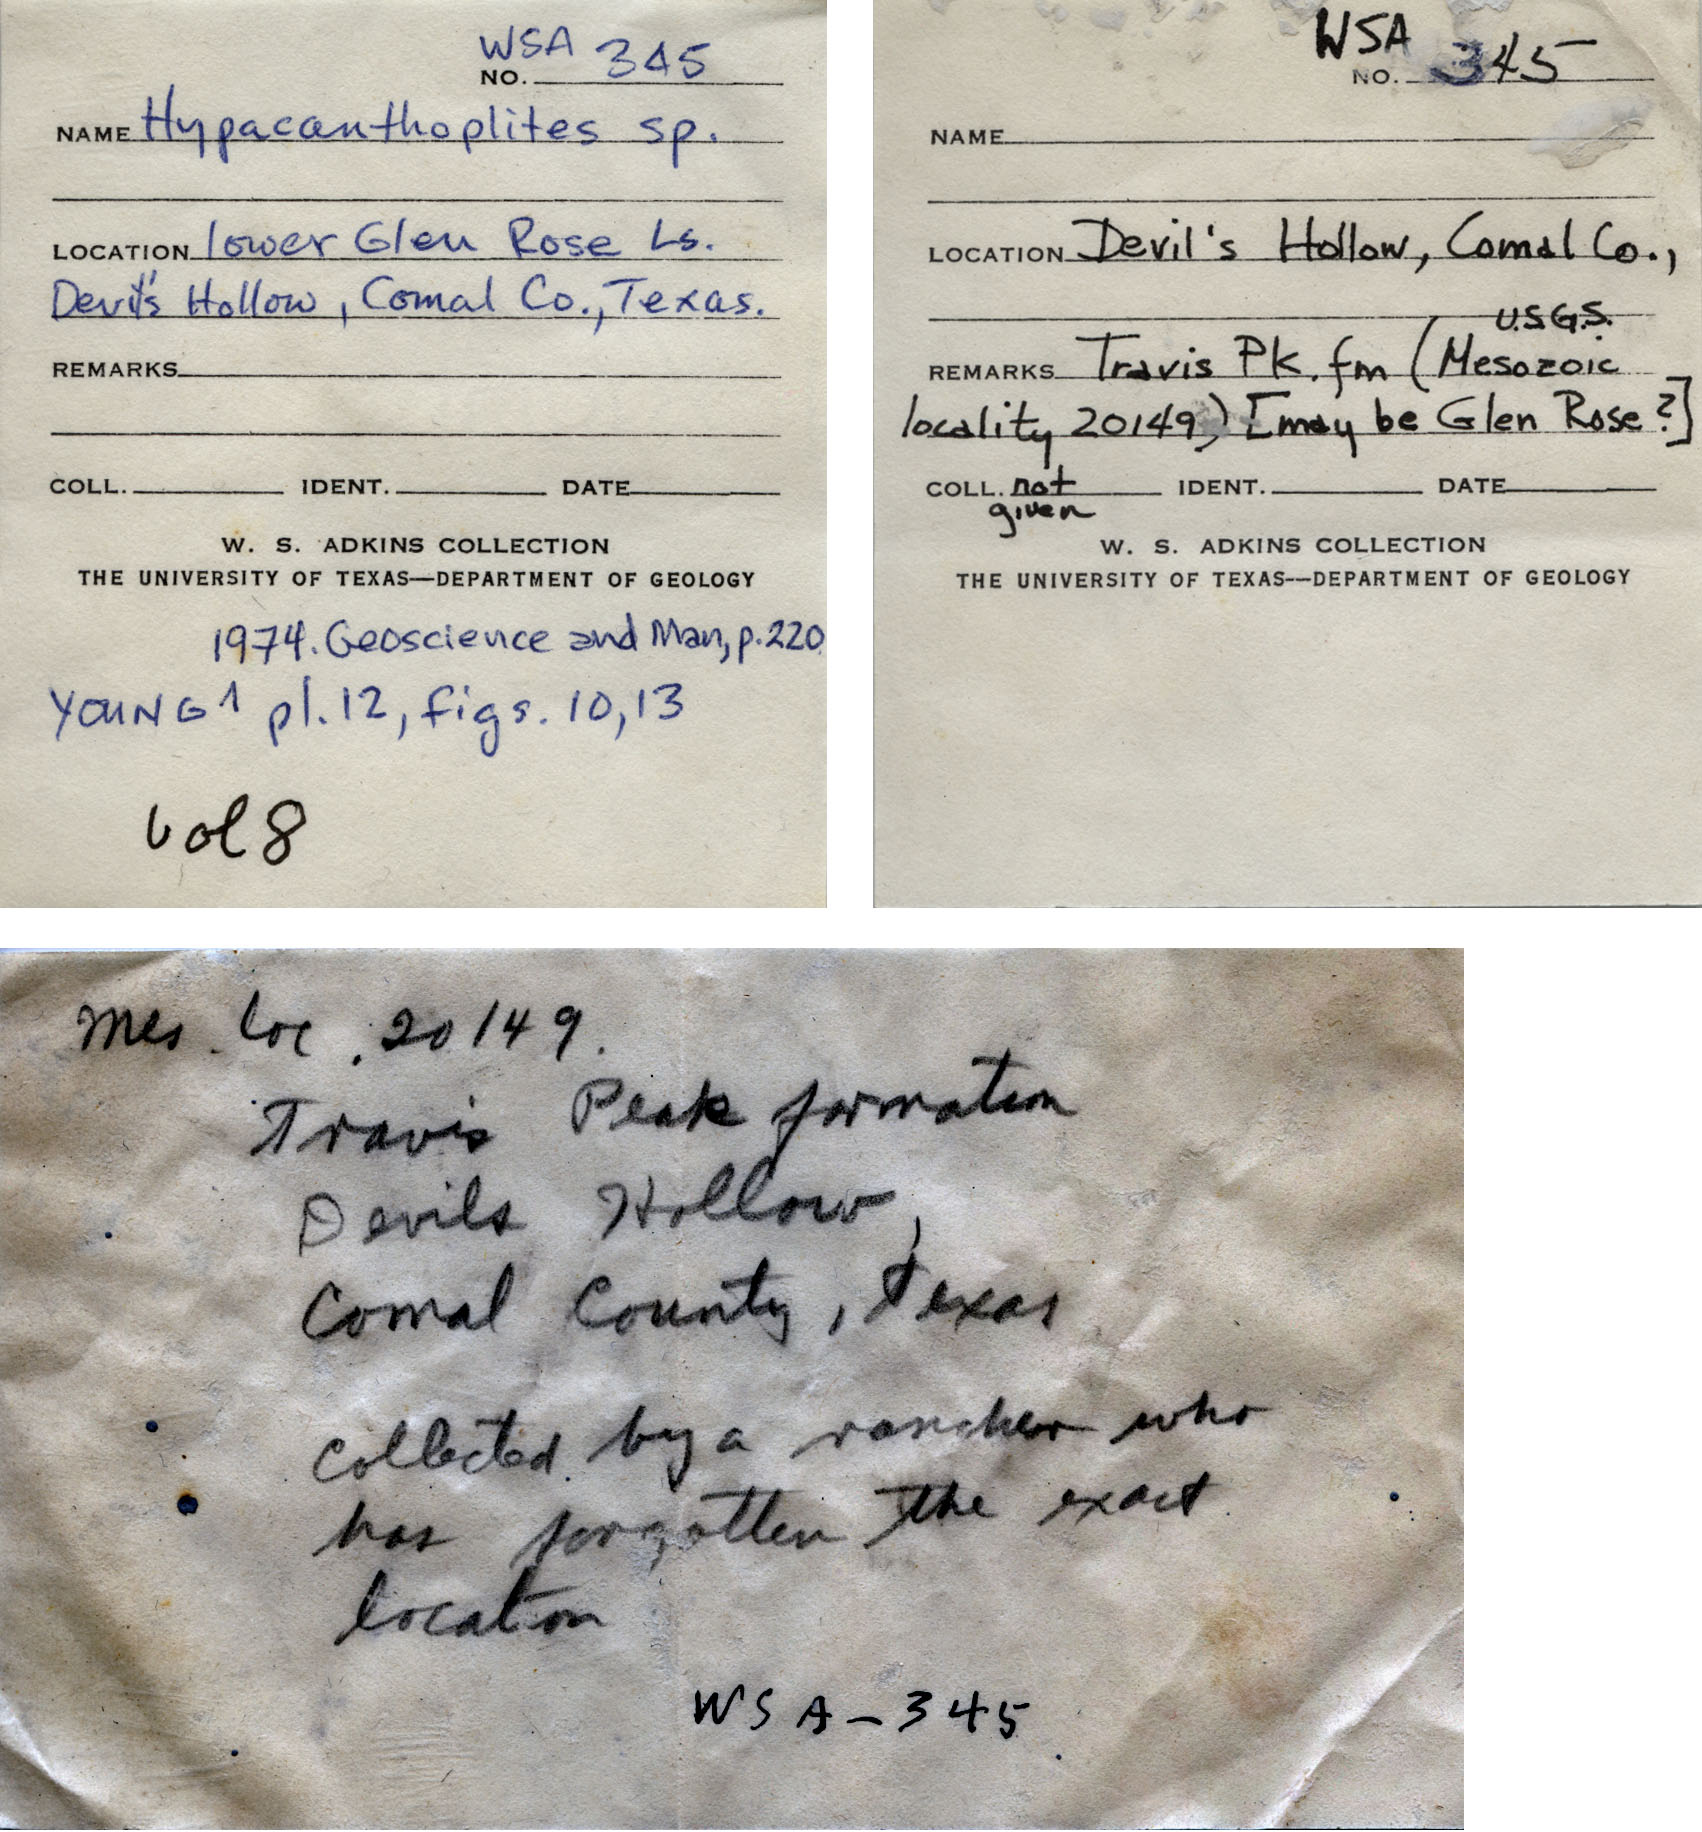 WSA
NO. 345
NAME Hypacanthoplites sp.
LOCATION lower Glen Rose Ls.
Devil's Hollow, Comal Co., Texas.
REMARKS
COLL. IDENT. DATE
W. S. ADKINS COLLECTION
THE UNIVERSITY OF TEXAS—DEPARTMENT OF GEOLOGY
1974. Geoscience and Man, p. 220
YOUNG ^ pl. 12, figs. 10, 13
vol 8
WSA
NO. 345
NAME
LOCATION Devil's Hollow, Comal Co.,
U.S.G.S.
REMARKS Travis Pk. fm (Mesozoic
locality 20149) [may be Glen Rose?]
COLL. not IDENT. DATE
given
W. S. ADKINS COLLECTION
THE UNIVERSITY OF TEXAS—DEPARTMENT OF GEOLOGY
Mes. loc. 20149.
Travis Peak formation
Devils Hollow,
Comal County, Texas
collected by a rancher who
has forgotten the exact
location
WSA-345